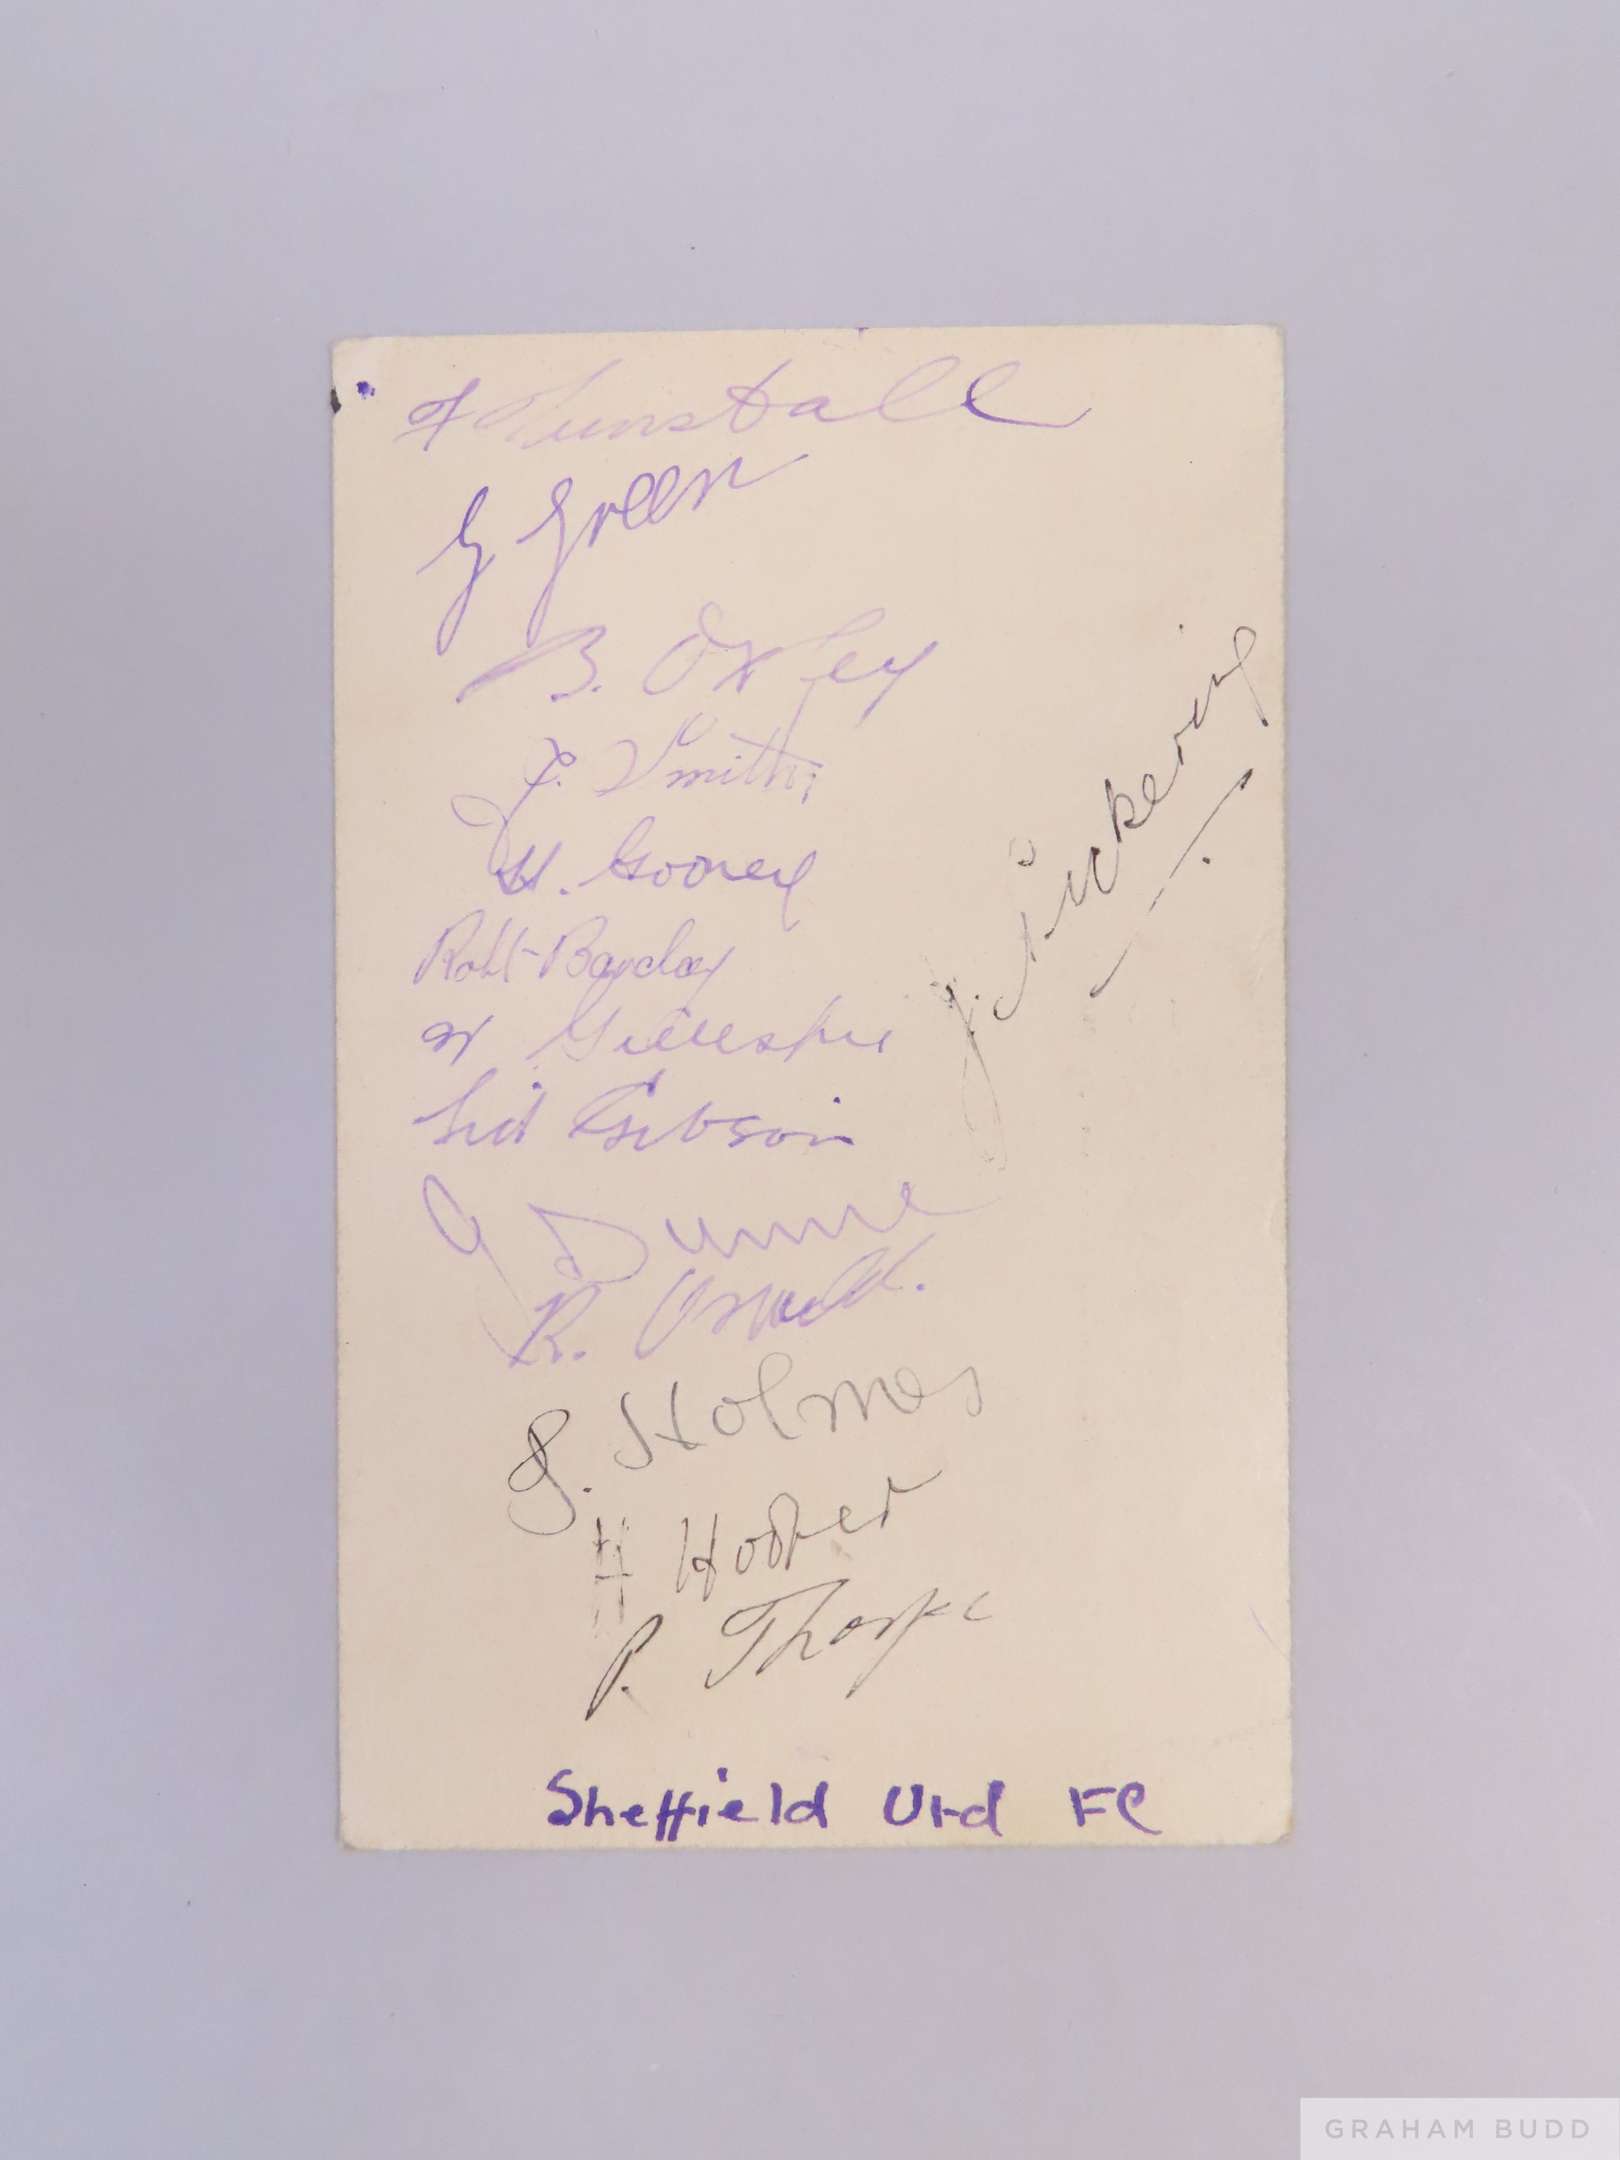 F Tunstall
G Green
B. Oxley
J. Smith
H. Gooney
Robt Barclay
W Gillespie
Sid Gibson
J Dunne
R. Oswald.
J. Pickering
J. Holmes
H Hooper
P. Thorpe
Sheffield Utd FC
GRAHAM BUDD